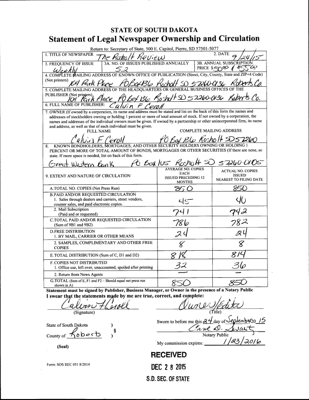 STATE OF SOUTH DAKOTA
Statement of Legal Newspaper Ownership and Circulation
Return to: Secretary of State, 500 E. Capitol, Pierre, SD 57501-5077
1. TITLE OF NEWSPAPER The Rosholt Review
2. DATE 9/24/15
3. FREQUENCY OF ISSUE Weekly
3A. NO. OF ISSUES PUBLISHED ANNUALLY 52
3B. ANNUAL SUBSCRIPTION PRICE
4. COMPLETE MAILING ADDRESS OF KNOWN OFFICE OF PUBLICATION (Street, City, County, State and ZIP+4 Code) (Not printers)
5. COMPLETE MAILING ADDRESS OF THE HEADQUARTERS OR GENERAL BUSINESS OFFICES OF THE PUBLISHER (Not printers)
6. FULL NAME OF PUBLISHER:
7. OWNER (If owned by a corporation, its name and address must be stated and
addresses of stockholders owning or holding 1 percent or more of total amount of stock. If not owned by a corporation, the
names and addresses of the individual owners must be given. If owned by a partnership or other unincorporated firm, its name
and address, as well as that of each individual must be given.
FULL NAME COMPLETE MAILING ADDRESS
8. KNOWN BONDHOLDERS, MORTGAGEES, AND OTHER SECURITY HOLDERS OWNING OR HOLDING 1
PERCENT OR MORE OF TOTAL AMOUNT OF BONDS, MORTGAGES OR OTHER SECURITIES (If there are none, so
state. If more space is needed, list on back of this form.
Great Western Bank
9. EXTENT AND NATURE OF CIRCULATION
AVERAGE NO. COPIES EACH ISSUED PRECEDING 12 MONTHS
ACTUAL NO. COPIES ISSUED NEAREST TO FILING DATE
A. TOTAL NO. COPIES (Net Press Run) 850 850
B. PAID AND/OR REQUESTED CIRCULATION
1. Sales through dealers and carriers, street vendors, counter sales, and paid electronic copies 45 40
2. Mail Subscription (Paid and or requested) 741 742
C. TOTAL PAID AND/OR REQUESTED CIRCULATION (Sum of 9B1 and 9B2) 786 782
D. FREE DISTRIBUTION
1. BY MAIL, CARRIER OR OTHER MEANS 24 24
2. SAMPLES, COMPLIMENTARY AND OTHER FREE COPIES 8 8
E. TOTAL DISTRIBUTION (Sum of C, D1 and D2) 818 814
F. COPIES NOT DISTRIBUTED
1. Office use, left over, unaccounted, spoiled after printing 32 36
2. Return from News Agents
G. TOTAL (Sum of E, F1 and F2 - Should equal net press run shown in A) 850 850
Statement must be signed by Publisher, Business Manager, or Owner in the presence of a Notary Public
I swear that the statements made by me are true, correct, and complete:
(Signature) (Title)
State of South Dakota )
County of Roberts )
Sworn to before me this 24 day of September, 15
Notary Public
My commission expires: 1/23/2016
(Seal)
RECEIVED
DEC 28 2015
S.D. SEC. OF STATE